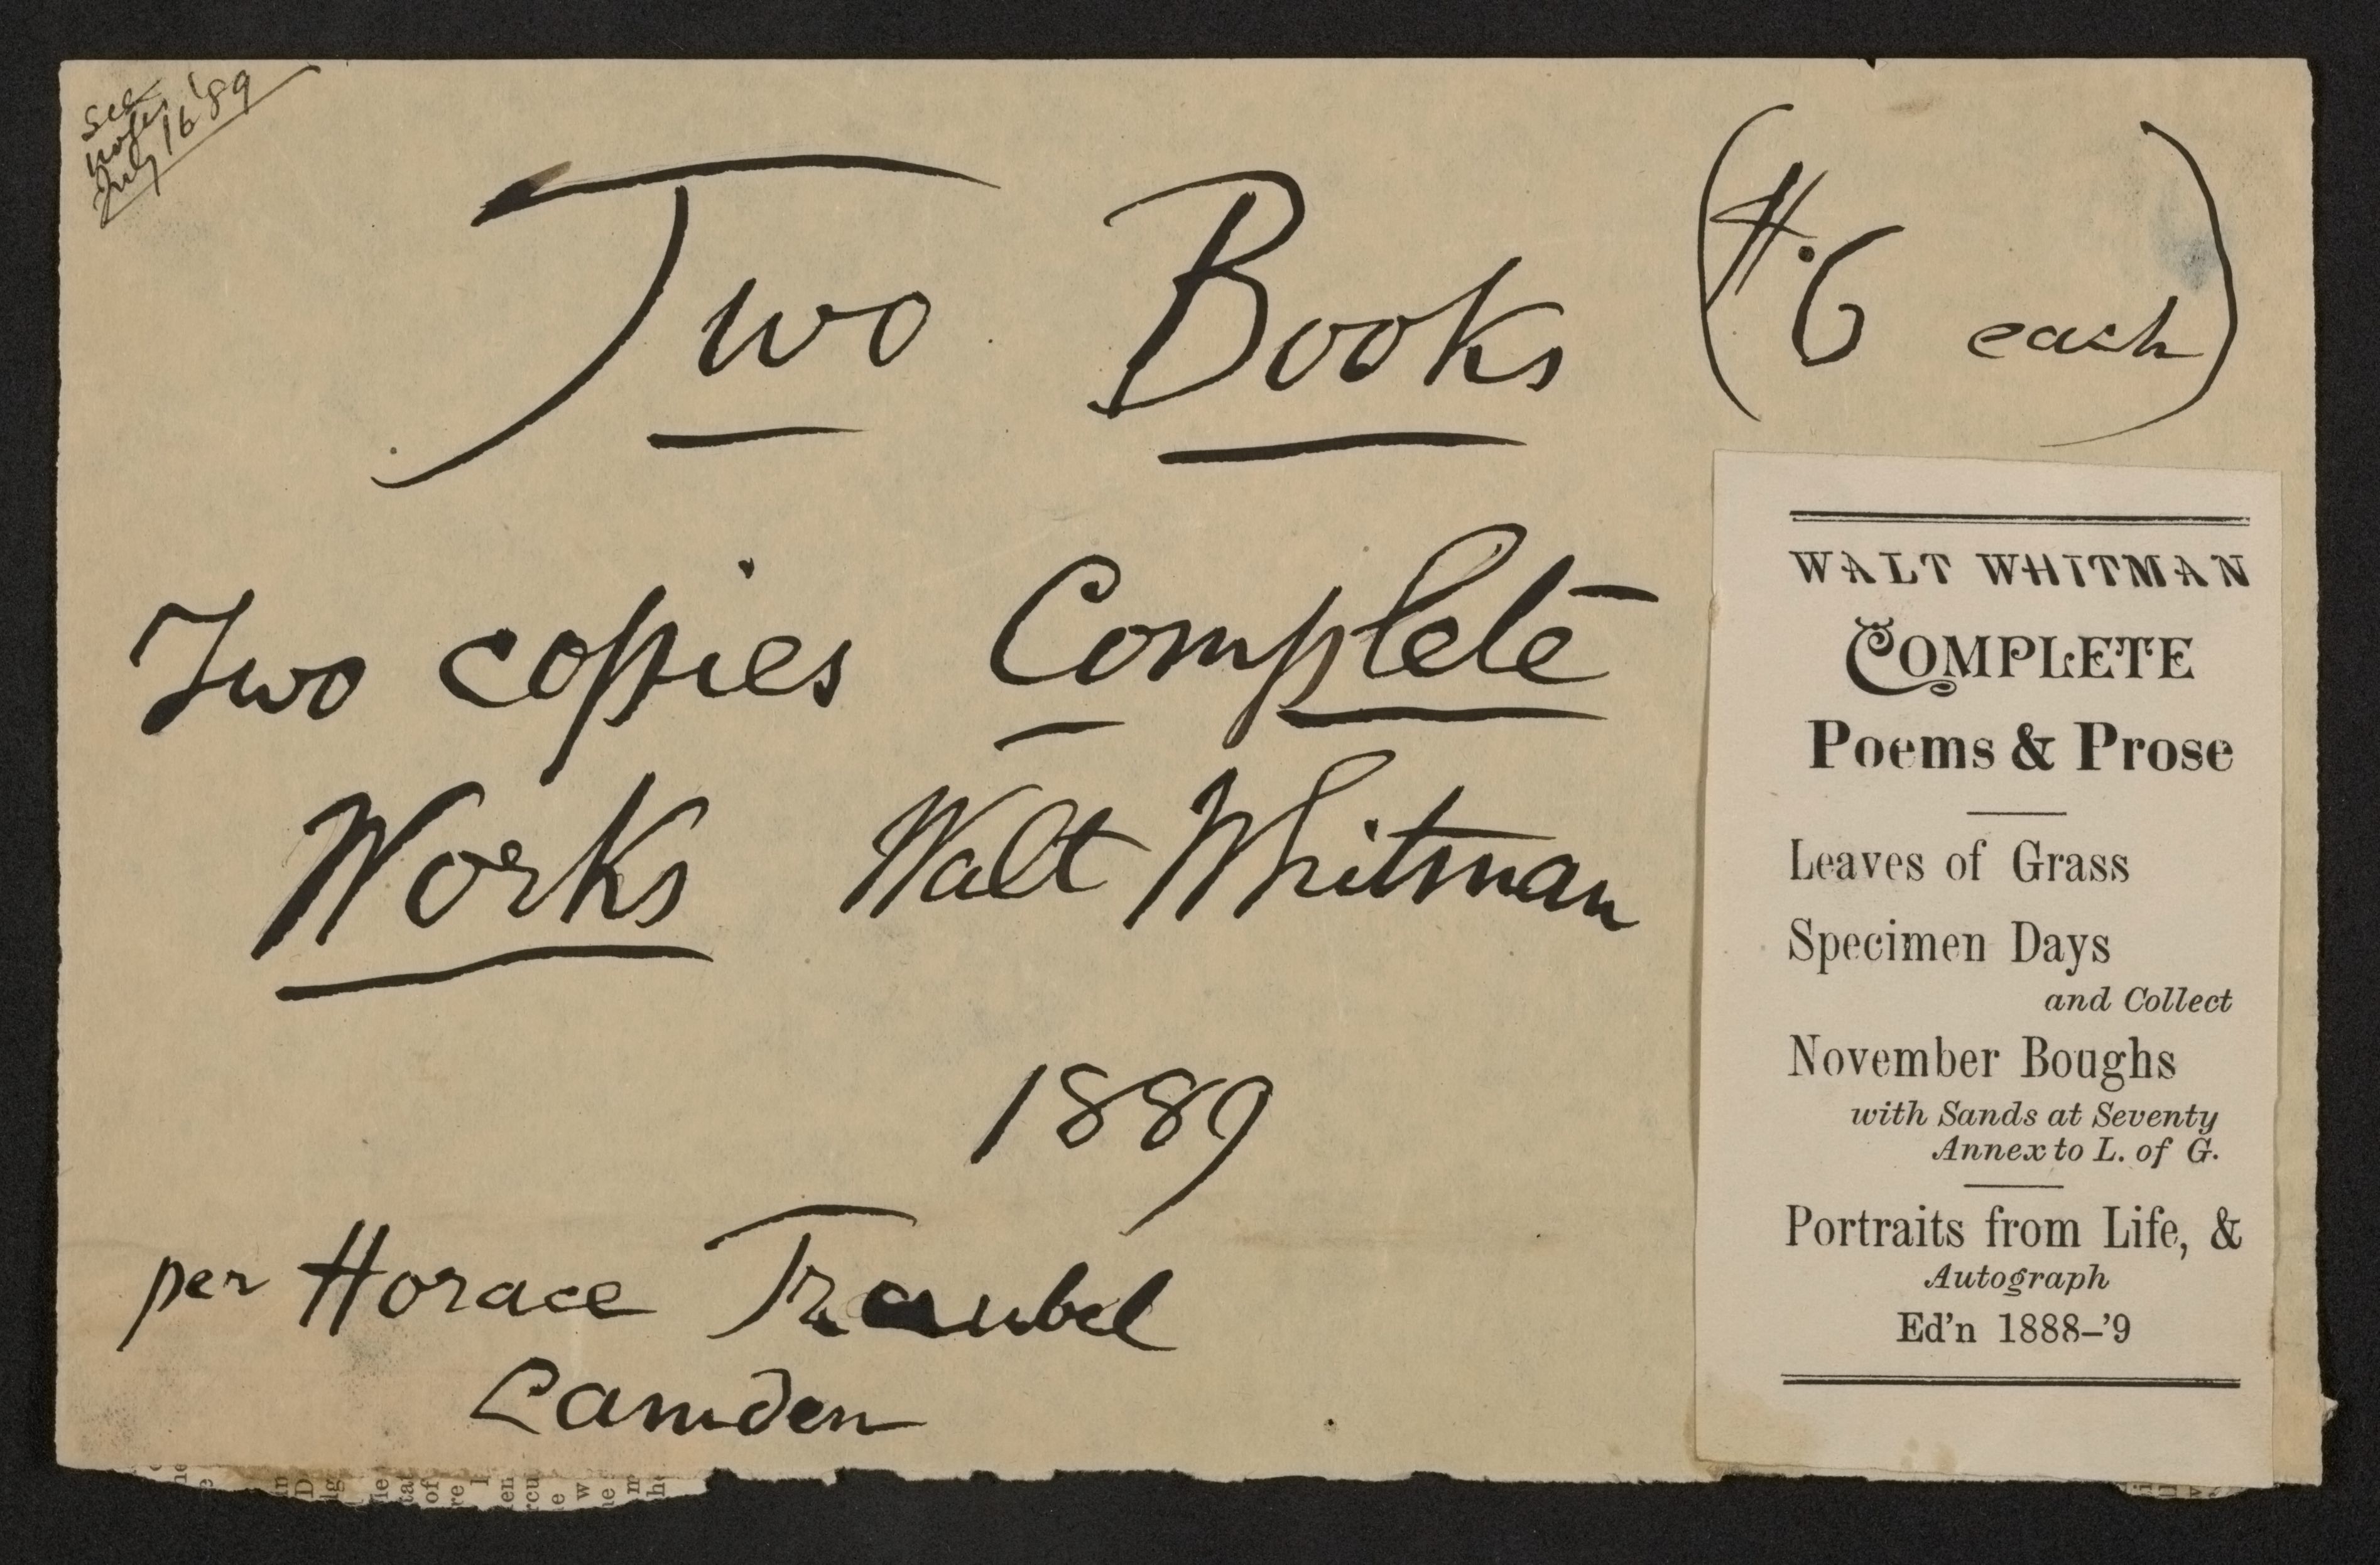 see
notes
July 16 '89
Two Books ($.6 each)
Two copies Complete
Works Walt Whitman
1889
per Horace Traubel
Camden
WALT WHITMAN
COMPLETE
Poems & Prose
Leaves of Grass
Specimen Days
and Collect
November Boughs
with Sands at Seventy
Annex to L. of G.
Portraits from Life, &
Autograph
Ed'n 1888–'9